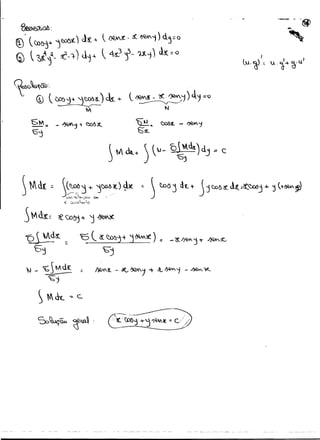 Exercícios:
① (cosy + y cosx) dx + (senx - x seny) dy = 0
② (3x⁴y² - x².7) dy + (4x³y³ - 2xy) dx = 0
(u.y)' = u.y' + y.u'
Resolução:
① (cosy + y cosx) dx + (senx - x seny) dy = 0
M N
δM/δy = - seny + cosx δN/δx = cosx - seny
∫ M dx + ∫ (N - δ∫Mdx/δy) dy = C
∫ M dx = ∫(cosy + y cosx) dx = ∫ cosy dx + ∫ y cosx dx = x cosy + y (+senx)
∫ M dx = x cosy + y senx
δ∫Mdx/δy = δ(x cosy + y senx)/δy = -x seny + senx
N - δ∫Mdx/δy = senx - x seny + x seny - senx
∫ M dx = C
Solução geral: x cosy + y senx = C